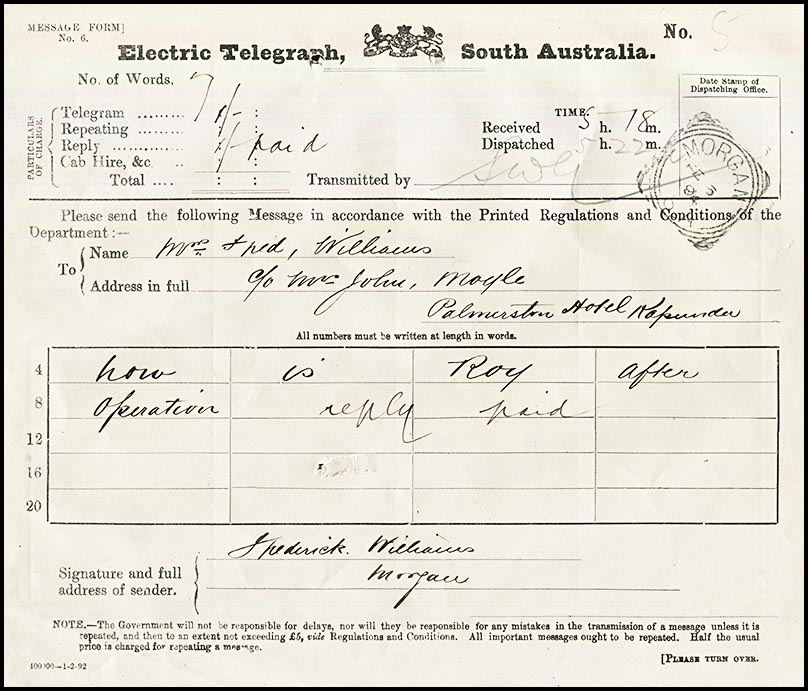 MESSAGE FORM]
No. 6.
No. 5
Electric Telegraph, South Australia.
No. of Words. 7
Date Stamp of
Dispatching Office.
PARTICULARS
OF CHARGE.
Telegram ......... 1/- :
Repeating ......... : :
Reply ......... 1/- paid
Cab Hire, &c. .. : :
Total .... : :
TIME.
Received 5 h. 18 m.
Dispatched 5 h. 22 m.
Transmitted by
MORGAN
FE 5
94
S.A
Please send the following Message in accordance with the Printed Regulations and Conditions of the
Department :—
To
Name Mrs. Fred, Williams
Address in full c/o Mrs John, Moyle
Palmerston Hotel Kapunda
All numbers must be written at length in words.
4 how is Roy after
8 Operation reply paid
12
16
20
Signature and full
address of sender.
Frederick. Williams
Morgan
NOTE.—The Government will not be responsible for delays, nor will they be responsible for any mistakes in the transmission of a message unless it is
repeated, and then to an extent not exceeding £5, vide Regulations and Conditions. All important messages ought to be repeated. Half the usual
price is charged for repeating a message.
400'00—1-2-92
[PLEASE TURN OVER.